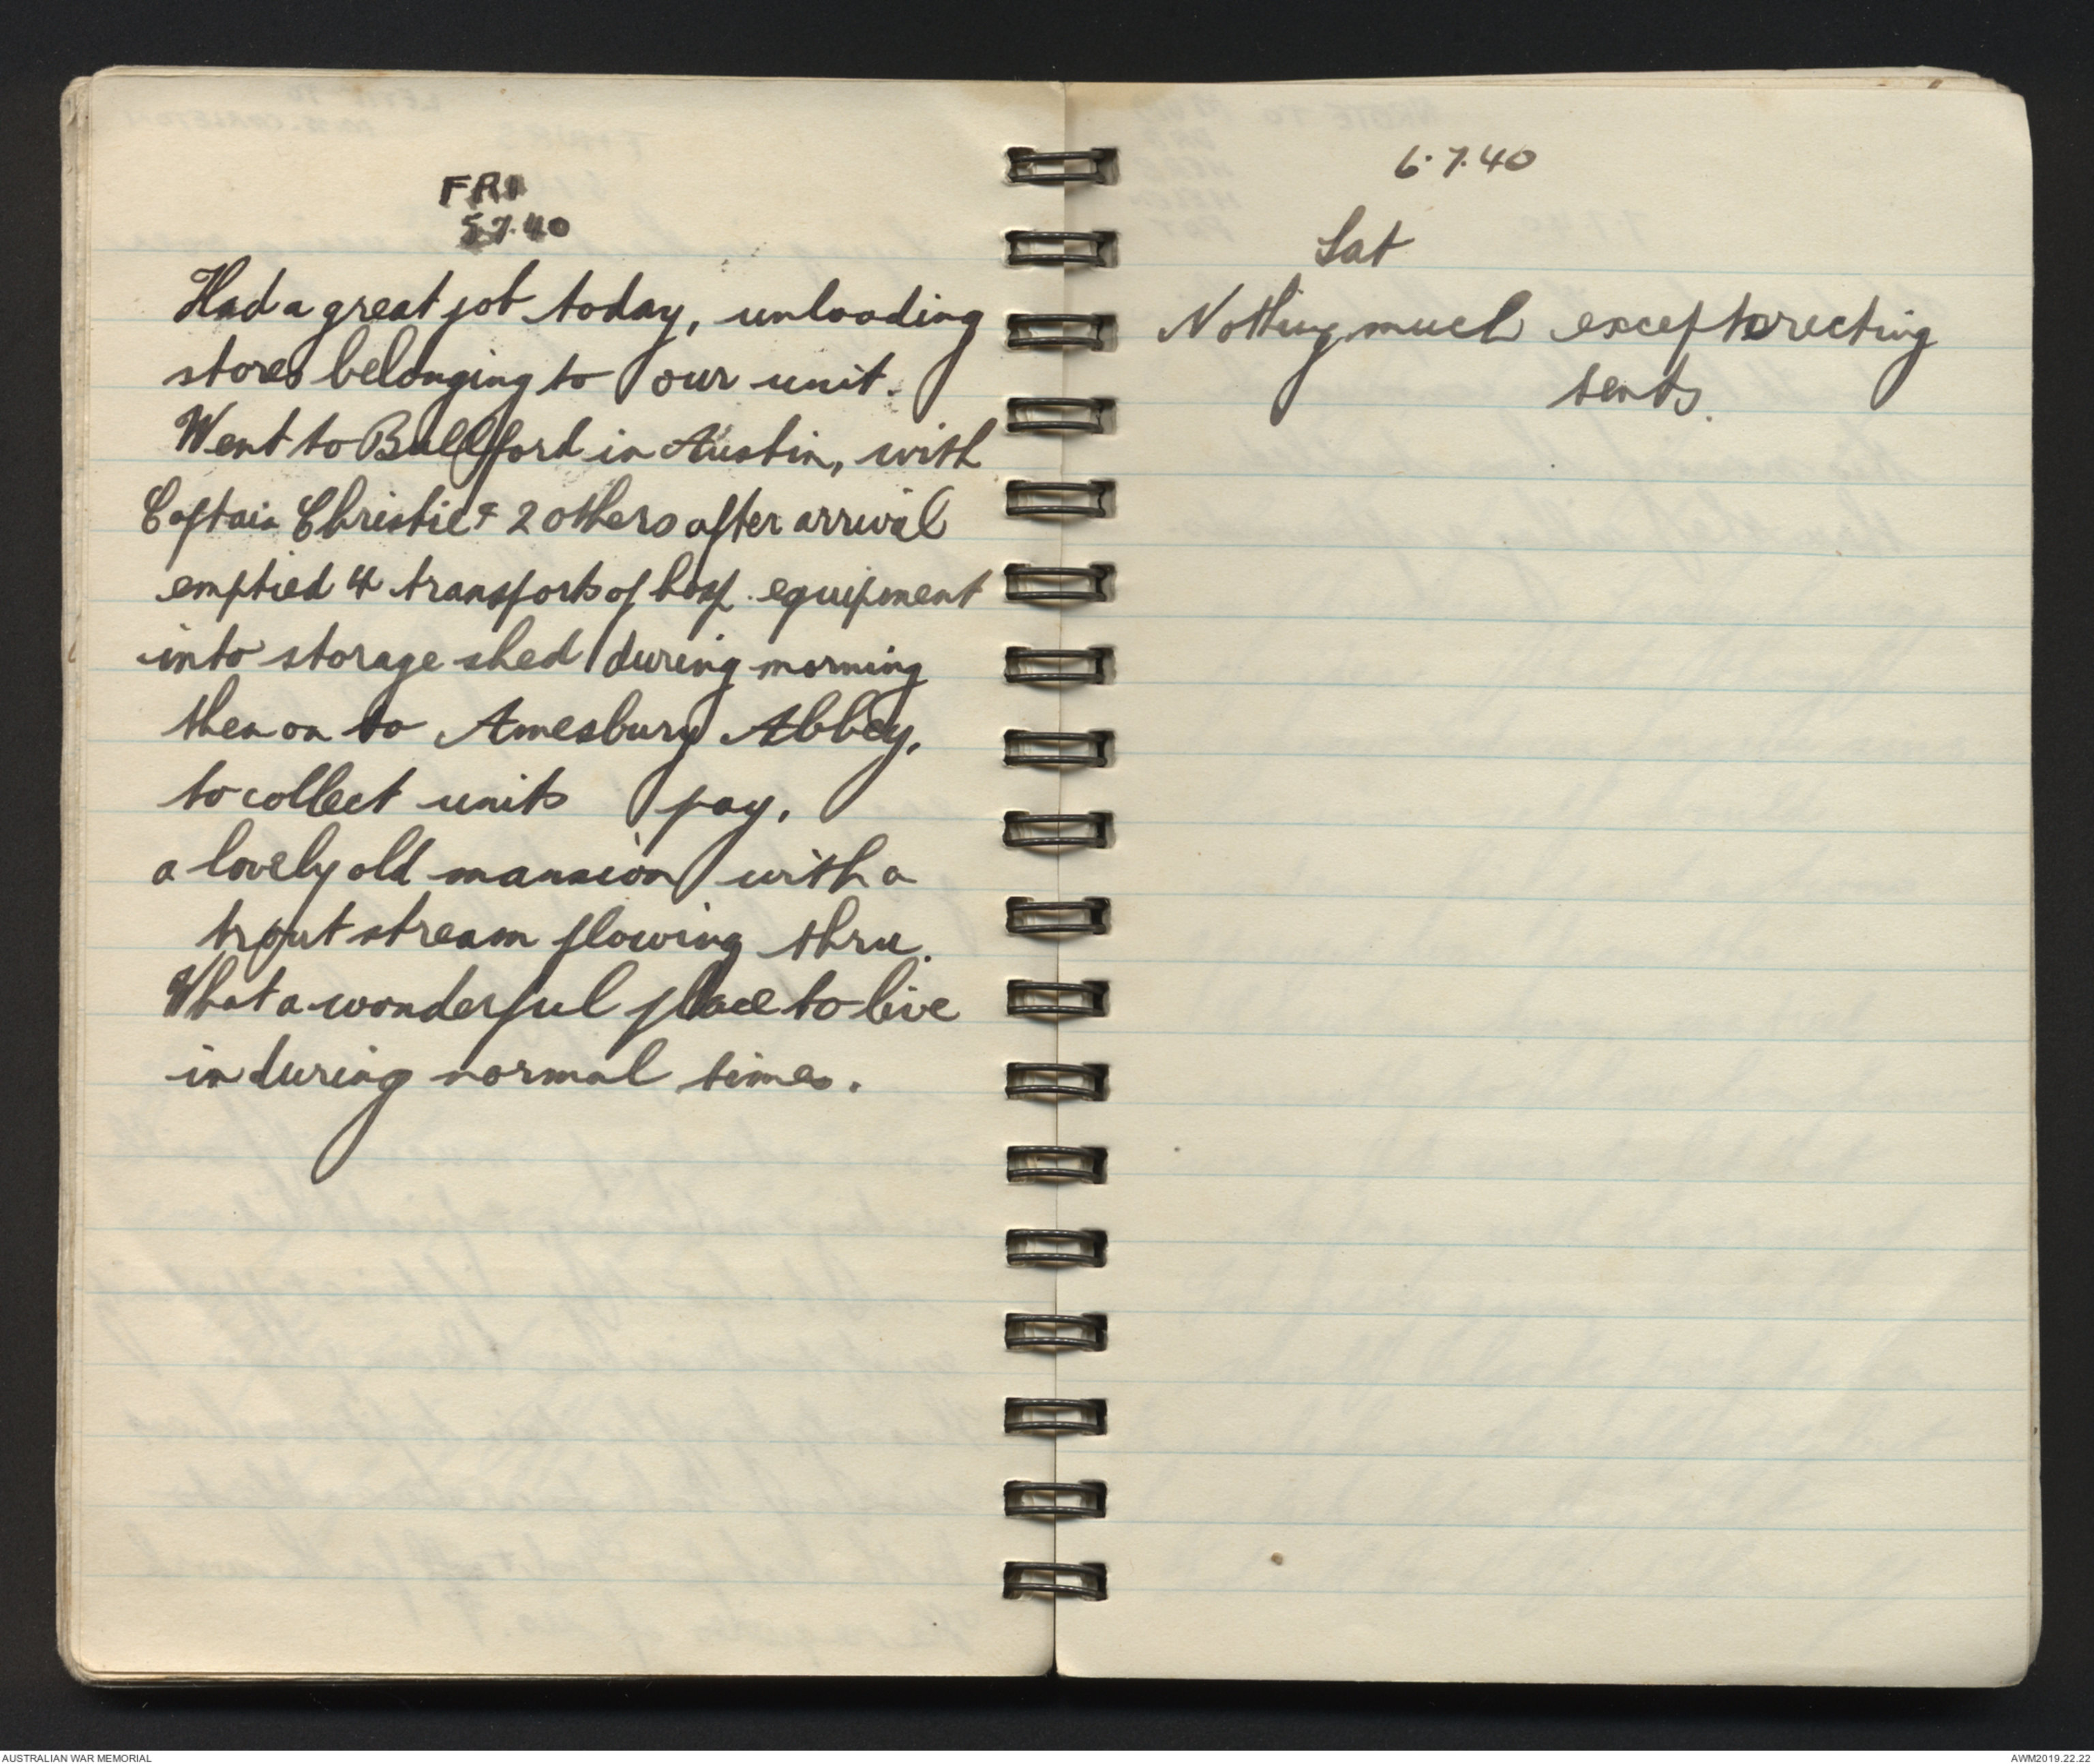 FRI
5.7.40
Had a great job today, unloading
stores belonging to our unit.
Went to Bullford in Austin, with
Captain Christie & 2 others after arrival
emptied 4 transports of hosp. equipment
into storage shed during morning
then on to Amesbury Abbey,
to collect units pay,
a lovely old mansion with a
trout stream flowing thru.
What a wonderful place to live
in during normal times.
6.7.40
Sat
Nothing much except erecting
tents.
AUSTRALIAN WAR MEMORIAL
AWM2019.22.22